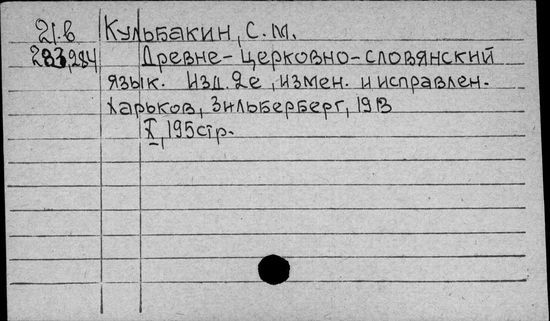 21.в Кульбакин, С. М.
283,284 Древне-церковно-словянский
язык. Изд. 2е, измен. и исправлен.
Харьков, Зильберберг, 1913
X, 195 стр.